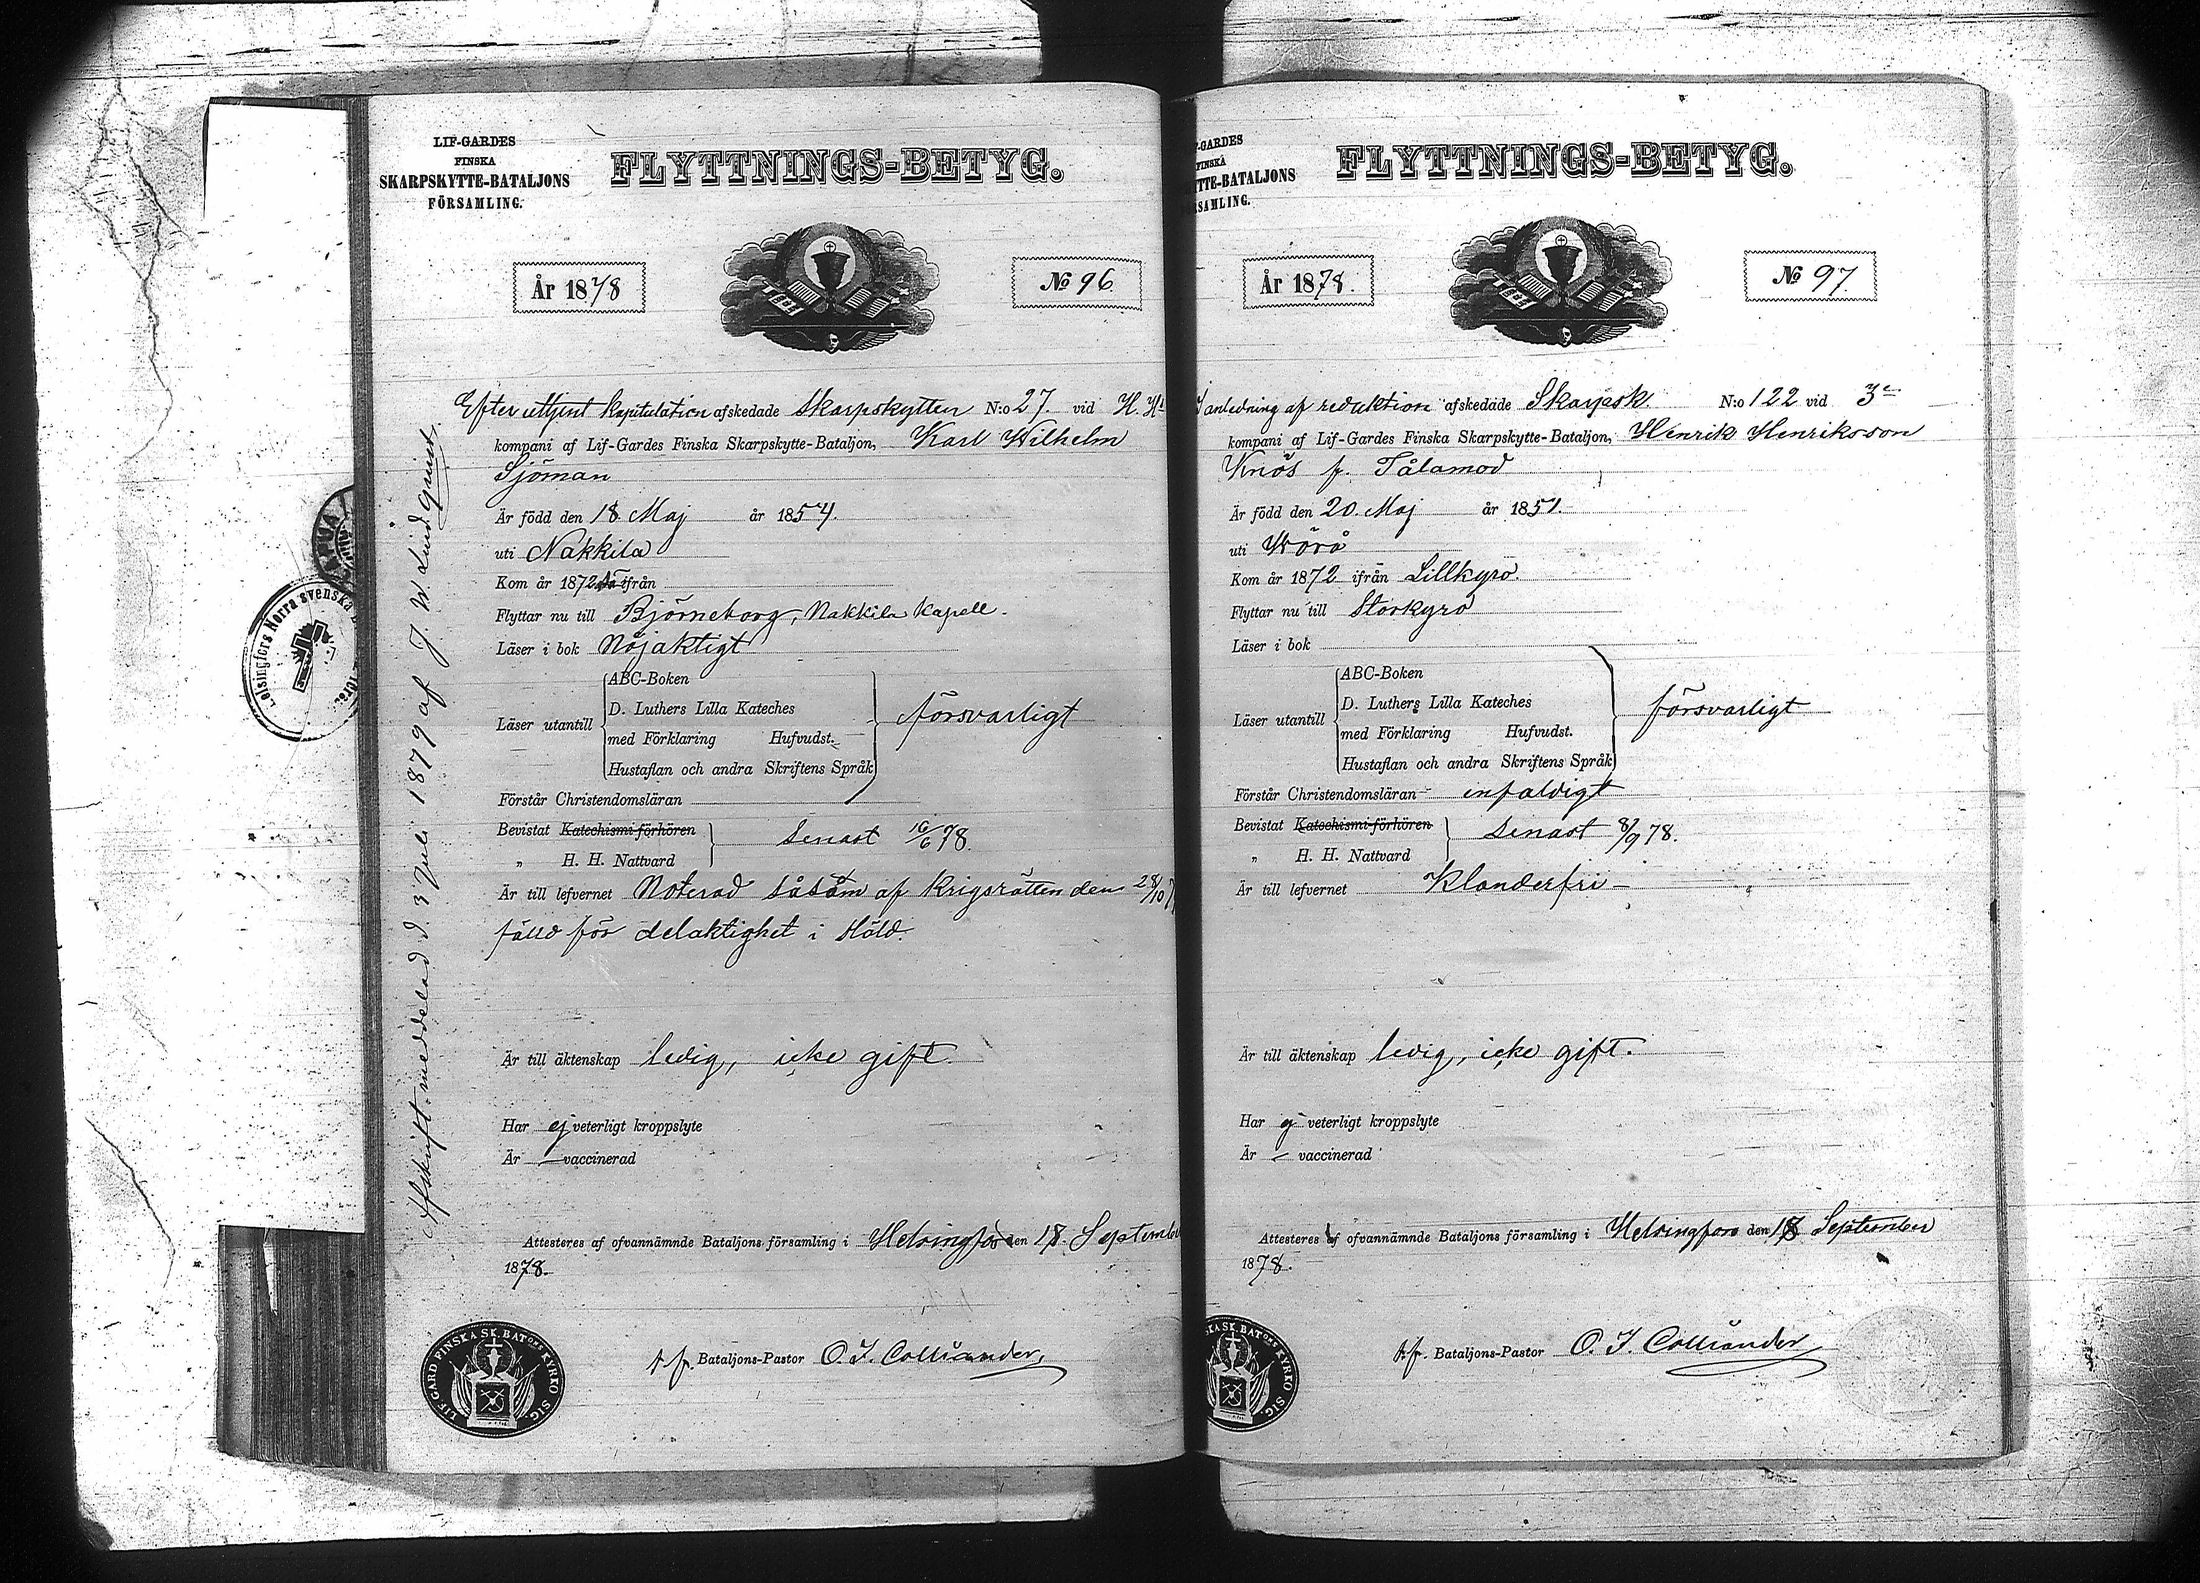 LIF-GARDES
FINSKA
SKARPSKYTTE-BATALJONS
FÖRSAMLING.
FLYTTNINGS-BETYG.
År 1878
№ 96
Efter uttjent kapitulation afskedade Skarpskytten N:o 27 vid H. H:s
kompani af Lif-Gardes Finska Skarpskytte-Bataljon, Karl Wilhelm
Sjöman
Är född den 18 Maj år 1854.
uti Nakkila
Kom år 1872 ifrån
Flyttar nu till Björneborg, Nakkila Kapell.
Läser i bok Nöjaktigt
Läser utantill
ABC-Boken
D. Luthers Lilla Kateches
med Förklaring Hufvudst.
Hustaflan och andra Skriftens Språk
försvarligt
Förstår Christendomsläran
Bevistat Katechismi-förhören
„ H. H. Nattvard
senast 16/6 78.
Är till lefvernet Noterad såsom af Krigsrätten den 28/10
fälld för delaktighet i stöld.
Är till äktenskap ledig, icke gift.
Har ej veterligt kroppslyte
Är — vaccinerad
Attesteres af ofvannämnde Bataljons församling i Helsingfors den 18 September
1878.
t.f. Bataljons-Pastor O. I. Colliander.
LIF. GARD FINSKA SK. BAT:ONS KYRKO SIG.
Afskrift meddelad d. 3 Juli 1879 af J. W Lindqvist.
Helsingfors Norra svenska
LIF-GARDES
FINSKA
TTE-BATALJONS
RSAMLING.
FLYTTNINGS-BETYG.
År 1878.
№ 97
I anledning af reduktion afskedade Skarpsk. N:o 122 vid 3e
kompani af Lif-Gardes Finska Skarpskytte-Bataljon, Henrik Henriksson
Knös f. Tålamod
Är född den 20. Maj år 1851.
uti Wörå
Kom år 1872 ifrån Lillkyro.
Flyttar nu till Storkyro
Läser i bok
Läser utantill
ABC-Boken
D. Luthers Lilla Kateches
med Förklaring Hufvudst.
Hustaflan och andra Skriftens Språk
försvarligt
Förstår Christendomsläran enfaldigt
Bevistat Katechismi-förhören
„ H. H. Nattvard
senast 8/9 78.
Är till lefvernet Klanderfri —
Är till äktenskap ledig, icke gift.
Har ej veterligt kroppslyte
Är — vaccinerad
Attesteres af ofvannämnde Bataljons församling i Helsingfors den 18 September
1878.
t.f. Bataljons-Pastor O. I. Colliander
SKA SK. BAT:ONS KYRKO SIG.